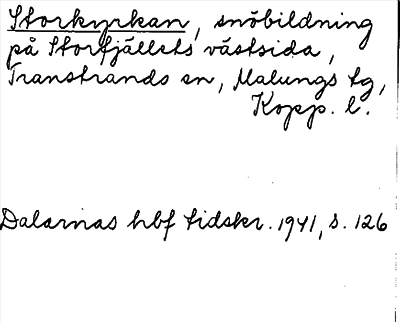 Storkyrkan, snöbildning
på Storfjällets västsida,
Transtrands sn, Malungs tg,
Kopp. l.
Dalarnas hbf tidskr. 1941, s. 126